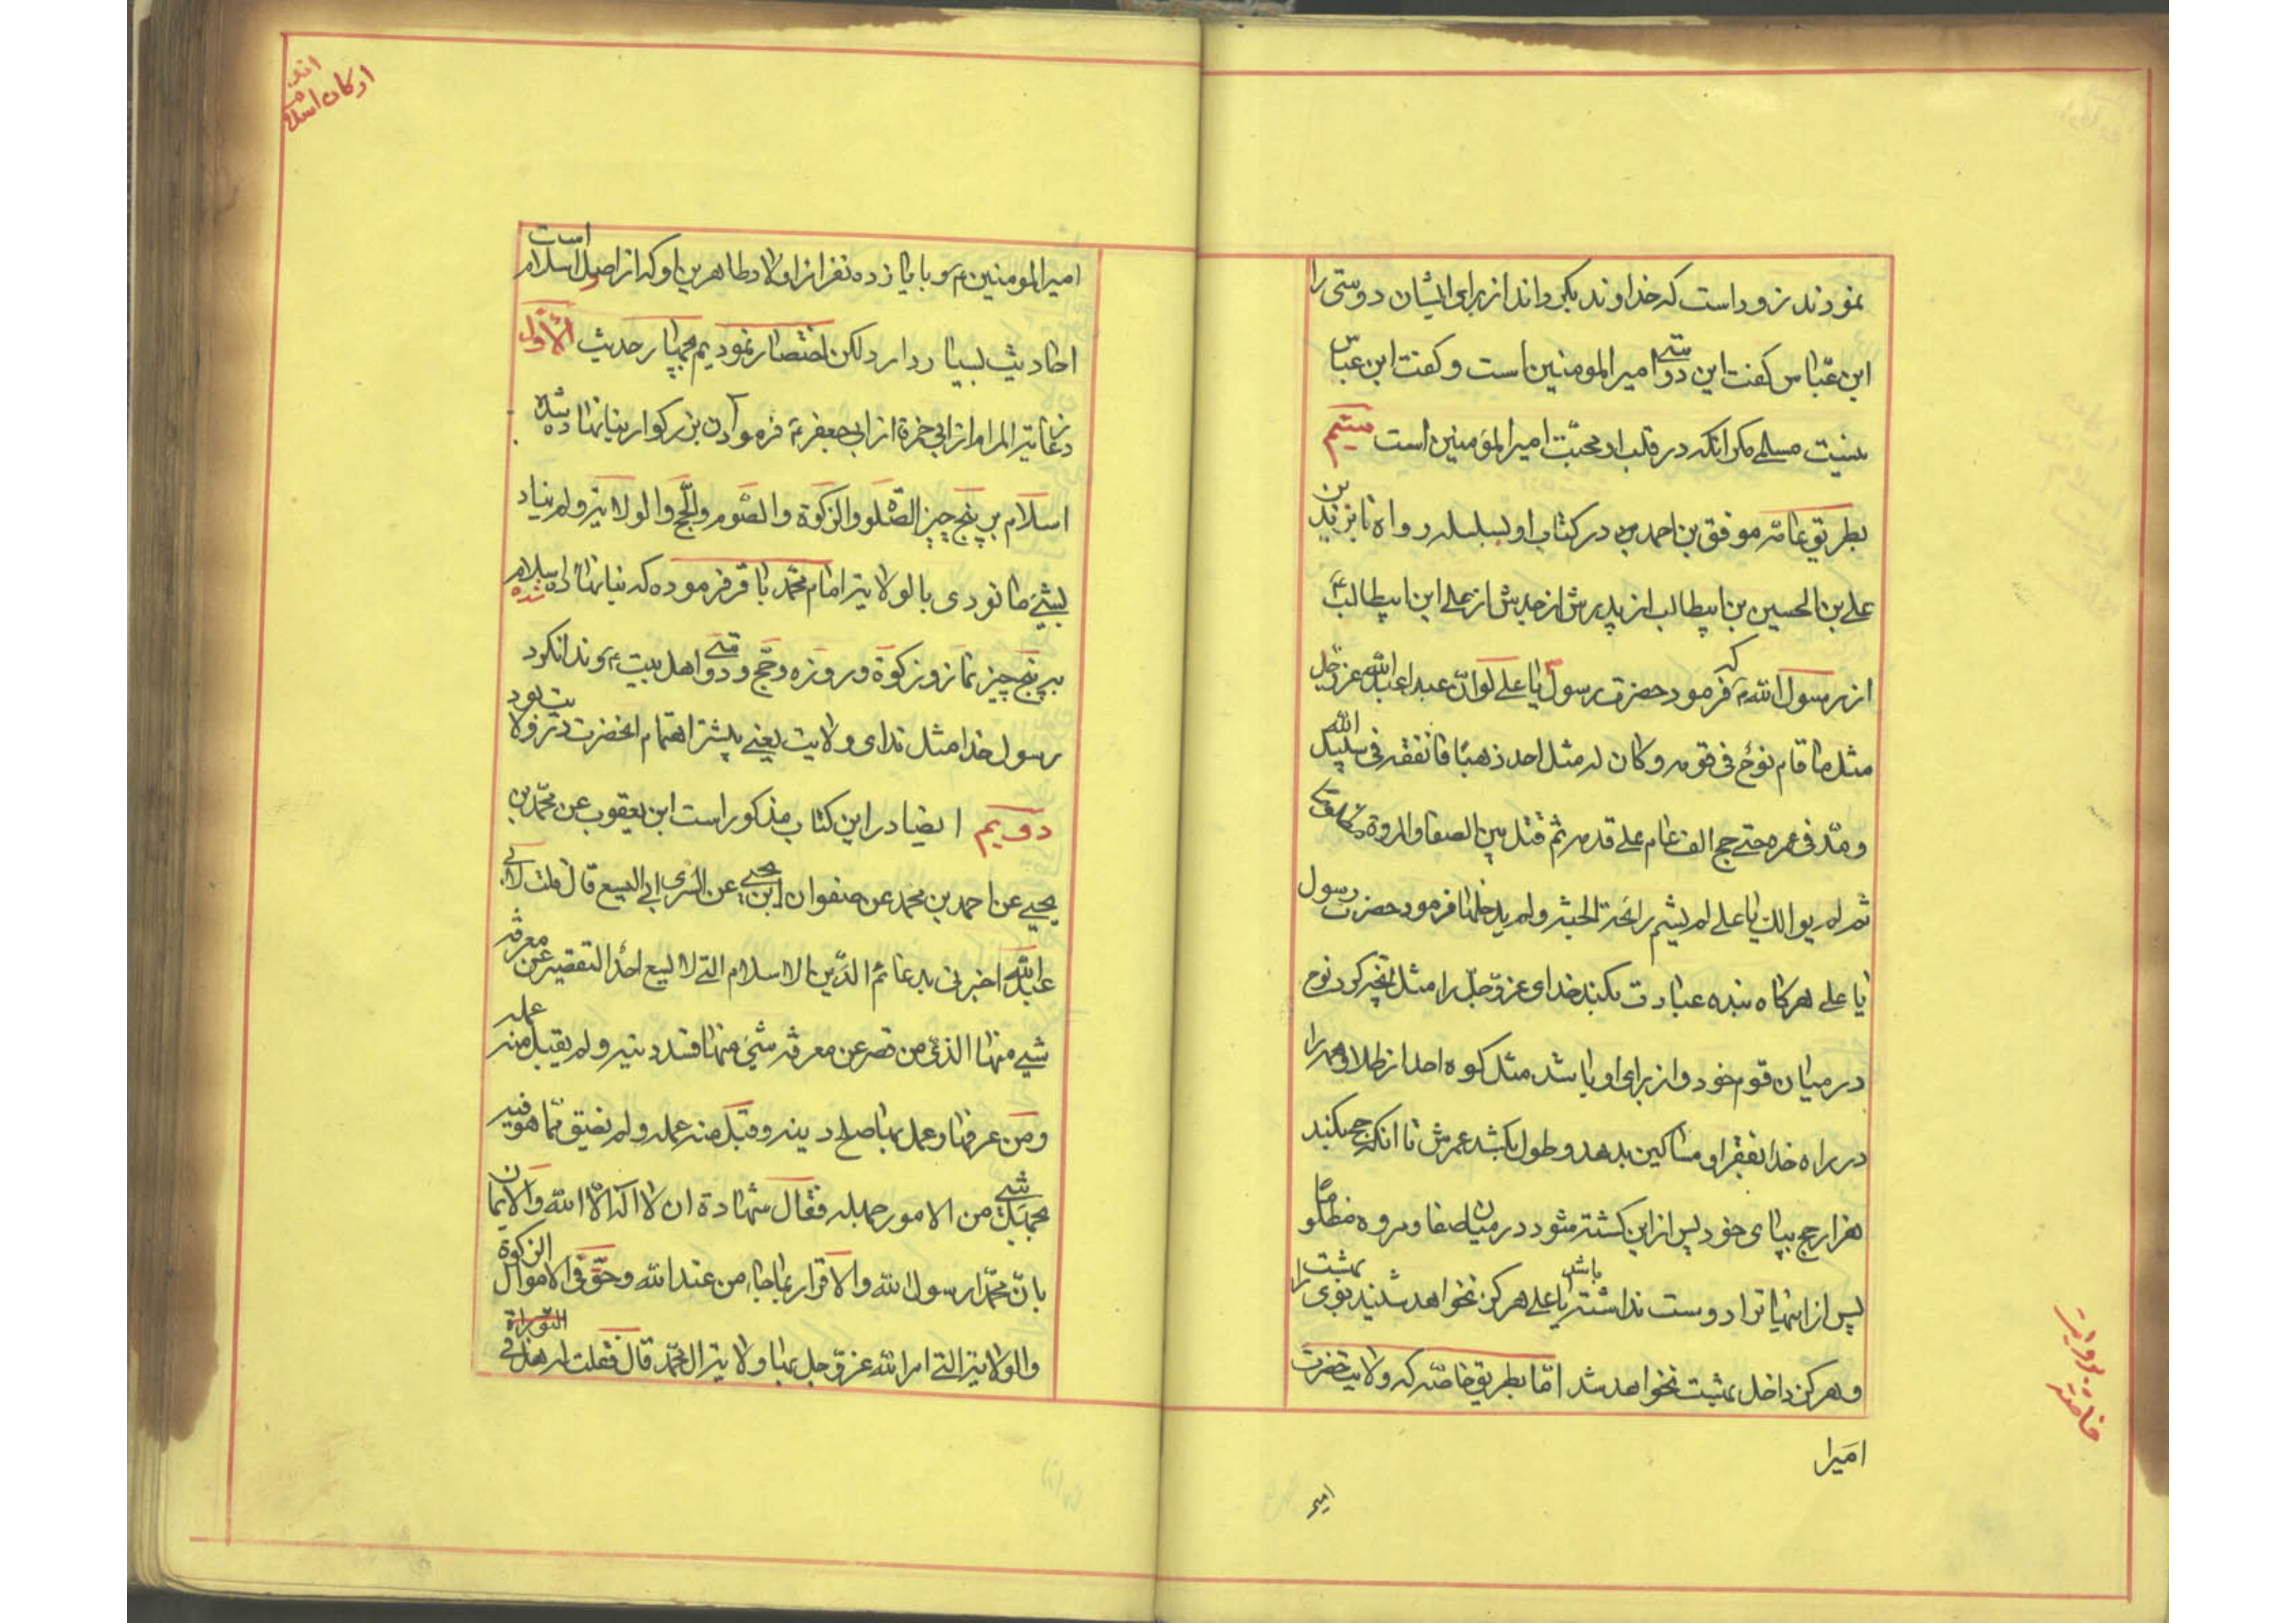 نمودند زود است که خداوند بگرداند از برای ایشان دوستی را
ابن عبّاس گفت این دوستی امیرالمومنین است و گفت ابن عبّاس
نیست مسلمی مگر آنکه در قلب او محبّت امیرالمؤمنین است بیستم
بطریق عامّه موفق بن احمد در کتاب او بسلسله رواه تا بزید بن
علی بن الحسین بن ابیطالب از پدرش از جدش از علی ابن ابیطالبؑ
از رسول الله که فرمود حضرت رسول یا علی لو انّ عبدا عبد الله عزّ و جل
مثل ما قام نوحٌ فی قومه و کان له مثل احد ذهبًا فانفقه فی سبیل الله
و مدّ فی عمره حتی حج الف عام علی قدمه ثم قتل بین الصفا و المروة مظلومًا
ثم لم یوالک یا علی لم یشم رائحة الجنة و لم یدخلها فرمود حضرت رسول
یا علی هرگاه بنده عبادت بکند خدای عزّ و جلّ را مثل آنچه کرد نوح
در میان قوم خود و از برای او باشد مثل کوه احد از طلا و همه را
در راه خدا بفقرا و مساکین بدهد و طول بکشد عمرش تا آنکه حج بکند
هزار حج بپای خود پس از این کشته شود در میان صفا و مروه مظلوما
پس از اینها ترا دوست نداشته باشد یا علی هرگز نخواهد شنید بوی بهشت را
و هرگز داخل بهشت نخواهد شد امّا بطریق خاصّه که ولایت حضرت
امیرا
خاصه
امیر
ارکان اسلام
امیرالمومنین و با یازده نفر از اولاد طاهرین او که از اصول اسلام است
احادیث بسیار دارد لکن اختصار نمودیم بچهار حدیث الاوّل
در غایة المرام از ابی حمزة از ابی جعفر فرمود آن بزرگوار بنا نهاده شده
اسلام بر پنج چیز الصّلوة و الزکوة و الصّوم و الحجّ و الولایة و لم یناد
بشیئ ما نودی بالولایة امام محمّد باقر فرموده که بنا نهاده شده اسلام
بر پنج چیز نماز و زکوة و روزه و حجّ و دوستی اهل بیت و ندا نکرد
رسول خدا مثل ندای ولایت یعنی بیشتر اهتمام آنحضرت در ولایت بود
دویم ایضا در این کتاب مذکور است ابن یعقوب عن محمّد بن
یحیی عن احمد بن محمد عن صفوان ابن یحیی عن السّری ابی الیسع قال قلت لابی
عبدالله اخبرنی بدعائم الدّین الاسلام التی لا یسع احدًا التقصیر عن معرفة
شیئ منها الذی من قصر عن معرفة شیئ منها فسد دینه و لم یقبل منه عمله
و من عرفها و عمل بها صلح دینه و قبل منه عمله و لم یضیق ممّا هو فیه
بجهل شیئ من الامور جهله فقال شهادة ان لا اله الّا الله و الایمان
بانّ محمّدا رسول الله و الاقرار بما جاء من عند الله و حقّ فی الاموال الزکوة
و الولایة التی امر الله عزّ و جل بها ولایة ال محمّد قال فقلت له هل فی